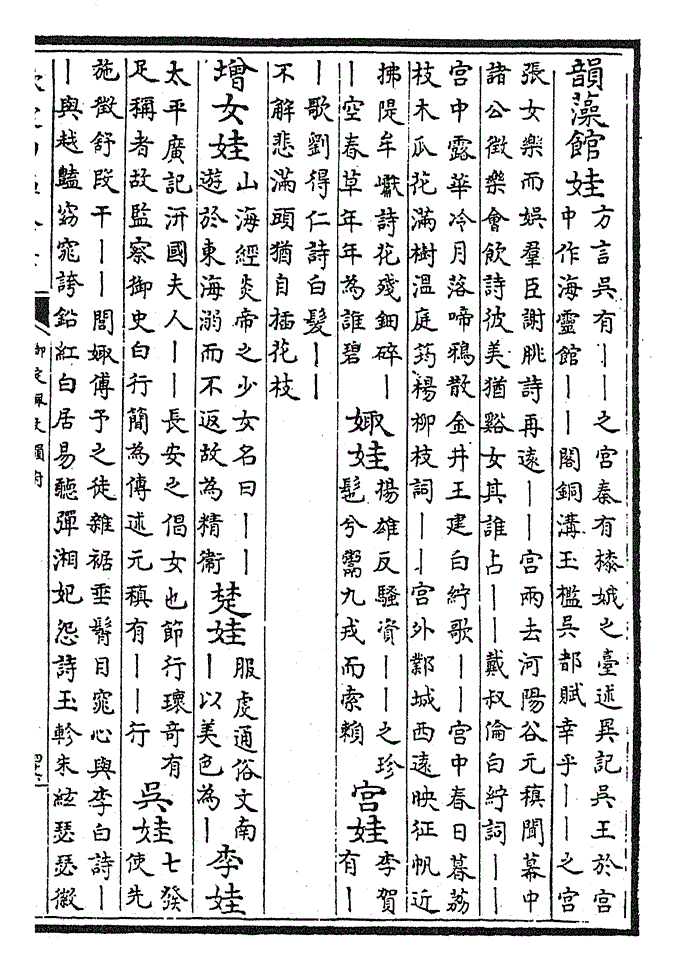 韻藻館娃方言吳有｜｜之宮秦有㯃娥之臺述異記吳王於宮
中作海靈館｜｜閣銅溝玉檻吳都賦幸乎｜｜之宮
張女樂而娛羣臣謝朓詩再遠｜｜宮兩去河陽谷元稹聞幕中
諸公徵樂會飲詩彼美猶谿女其誰占｜｜戴叔倫白紵詞｜｜
宮中露華冷月落啼鴉散金井王建白紵歌｜｜宮中春日暮荔
枝木瓜花滿樹溫庭筠楊柳枝詞｜｜宮外鄴城西遠映征帆近
拂隄牟巘詩花殘鈿碎｜
｜空春草年年為誰碧
娵娃揚雄反騷資｜｜之珍
髢兮鬻九戎而索賴
宮娃李賀
有｜
｜歌劉得仁詩白髮｜｜
不解悲滿頭猶自插花枝
增女娃山海經炎帝之少女名曰｜｜
遊於東海溺而不返故為精衛
楚娃服虔通俗文南
｜以美色為｜
李娃
太平廣記汧國夫人｜｜長安之倡女也節行瓌奇有
足稱者故監察御史白行簡為傳述元稹有｜｜行
吳娃七發
使先
施徵舒段干｜｜閭娵傅予之徒雜裾垂髾目窕心與李白詩｜
｜與越豔窈窕誇鉛紅白居易聽彈湘妃怨詩玉軫朱絃瑟瑟徽
御定佩文韻府